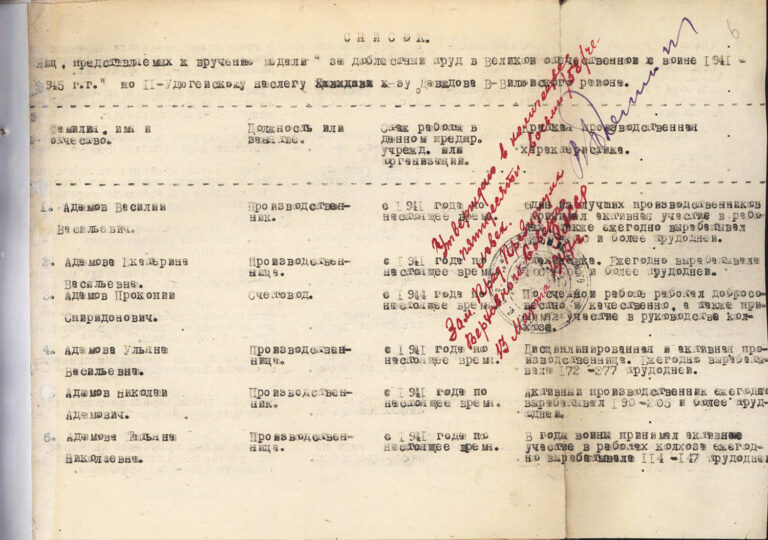 6
С П И С О К.
лиц, представляемых к вручению медали " за доблестный труд в Великой отечественной войне 1941 -
945 г.г." по II-Удюгейскому наслегу к-зу Давыдова В-Вилюйского района.
Фамилия, имя и отчество.
Должность или занятие.
Стаж работы в данном предпр. учрежд. или организации.
Краткая производственная характеристика.
1. Адамов Василии Васильевич.
Производствен-
ник.
с 1941 года по
настоящее время.
один из лучших производственников
принимал активная участие в рабо-
также ежегодно вырабатывал
и более трудодней.
2. Адамова Екатерина
Васильевна.
Производствен-
ница.
с 1941 года по
настоящее время.
Ежегодно вырабатывала
и более трудодней.
3. Адамов Прокопии
Спиридонович.
Счетовод.
с 1944 года по
настоящее время.
По счетной работе работал добросо-
вестно и качественно, а также при-
нимал участие в руководстве кол-
хоза.
4. Адамова Ульяна
Васильевна.
Производствен-
ница.
с 1941 года по
настоящее время.
Дисциплинированная и активная про-
изводственница. Ежегодно вырабаты-
вала 172 -277 трудодни.
Адамов Николаи
Адамович.
Производствен-
ник.
с 1941 года по
настоящее время.
Активный производственник ежегодно
вырабатывал 190 -205 и более труд-
одней.
6. Адамова Татьяна
Николаевна.
Производствен-
ница.
с 1941 года по
настоящее время.
В годы войны принимал активное
участие в работах колхоза ежегод-
но вырабатывала 114 -147 трудодней
Утверждаю в количестве
пятидесяти восьми /58/ че-
ловек.
Зам. Пред. Президиума
Верховного Совета
13 Марта